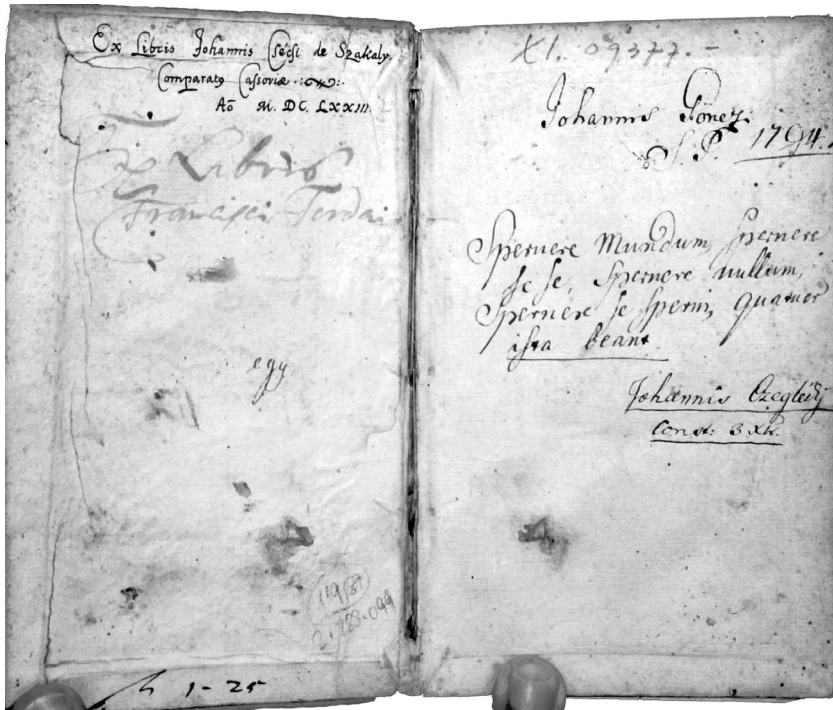 Ex Libris Johannis Csécsi de Szakaly
Comparatg Cassoviæ
Aō M. DC. LXXIII.
Ex Libris
Francisci Terdai
egy
119187
1-25
XI. 09377.-
Johannis Gönczi
S. P. 1794.
Spernere Mundum, spernere
se se, spernere nullum,
Spernere se sperni, quatuor
ista beant.
Johannis Czeglédj
Const: 3 xk.